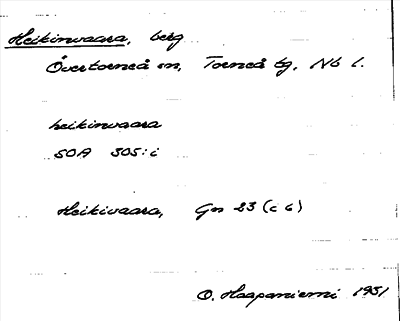 Heikinvaara, berg
Övertorneå sn, Torneå tg, Nb l.
heikinvaara
SOA 305:i
Heikivaara, Gs 23 (c 6)
O. Haapaniemi 1951